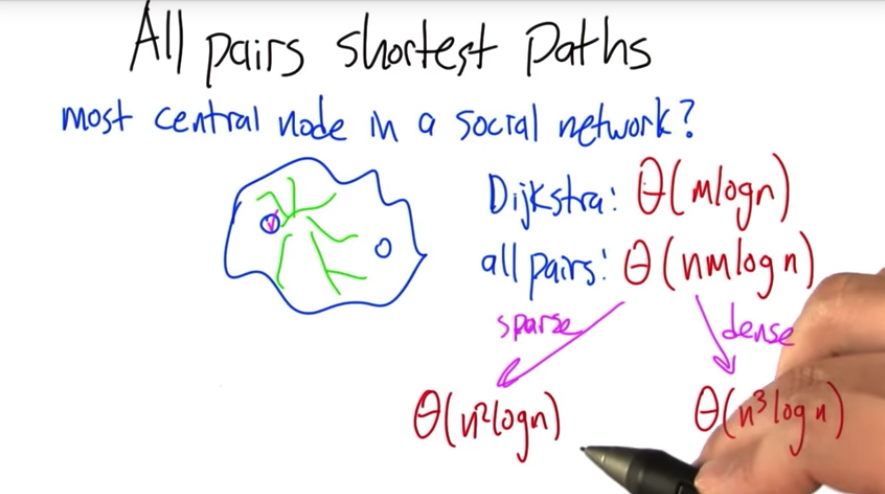 All pairs shortest paths
most central node in a social network?
Dijkstra: Θ(mlogn)
all pairs: Θ(nmlogn)
sparse
dense
Θ(n²logn)
Θ(n³logn)